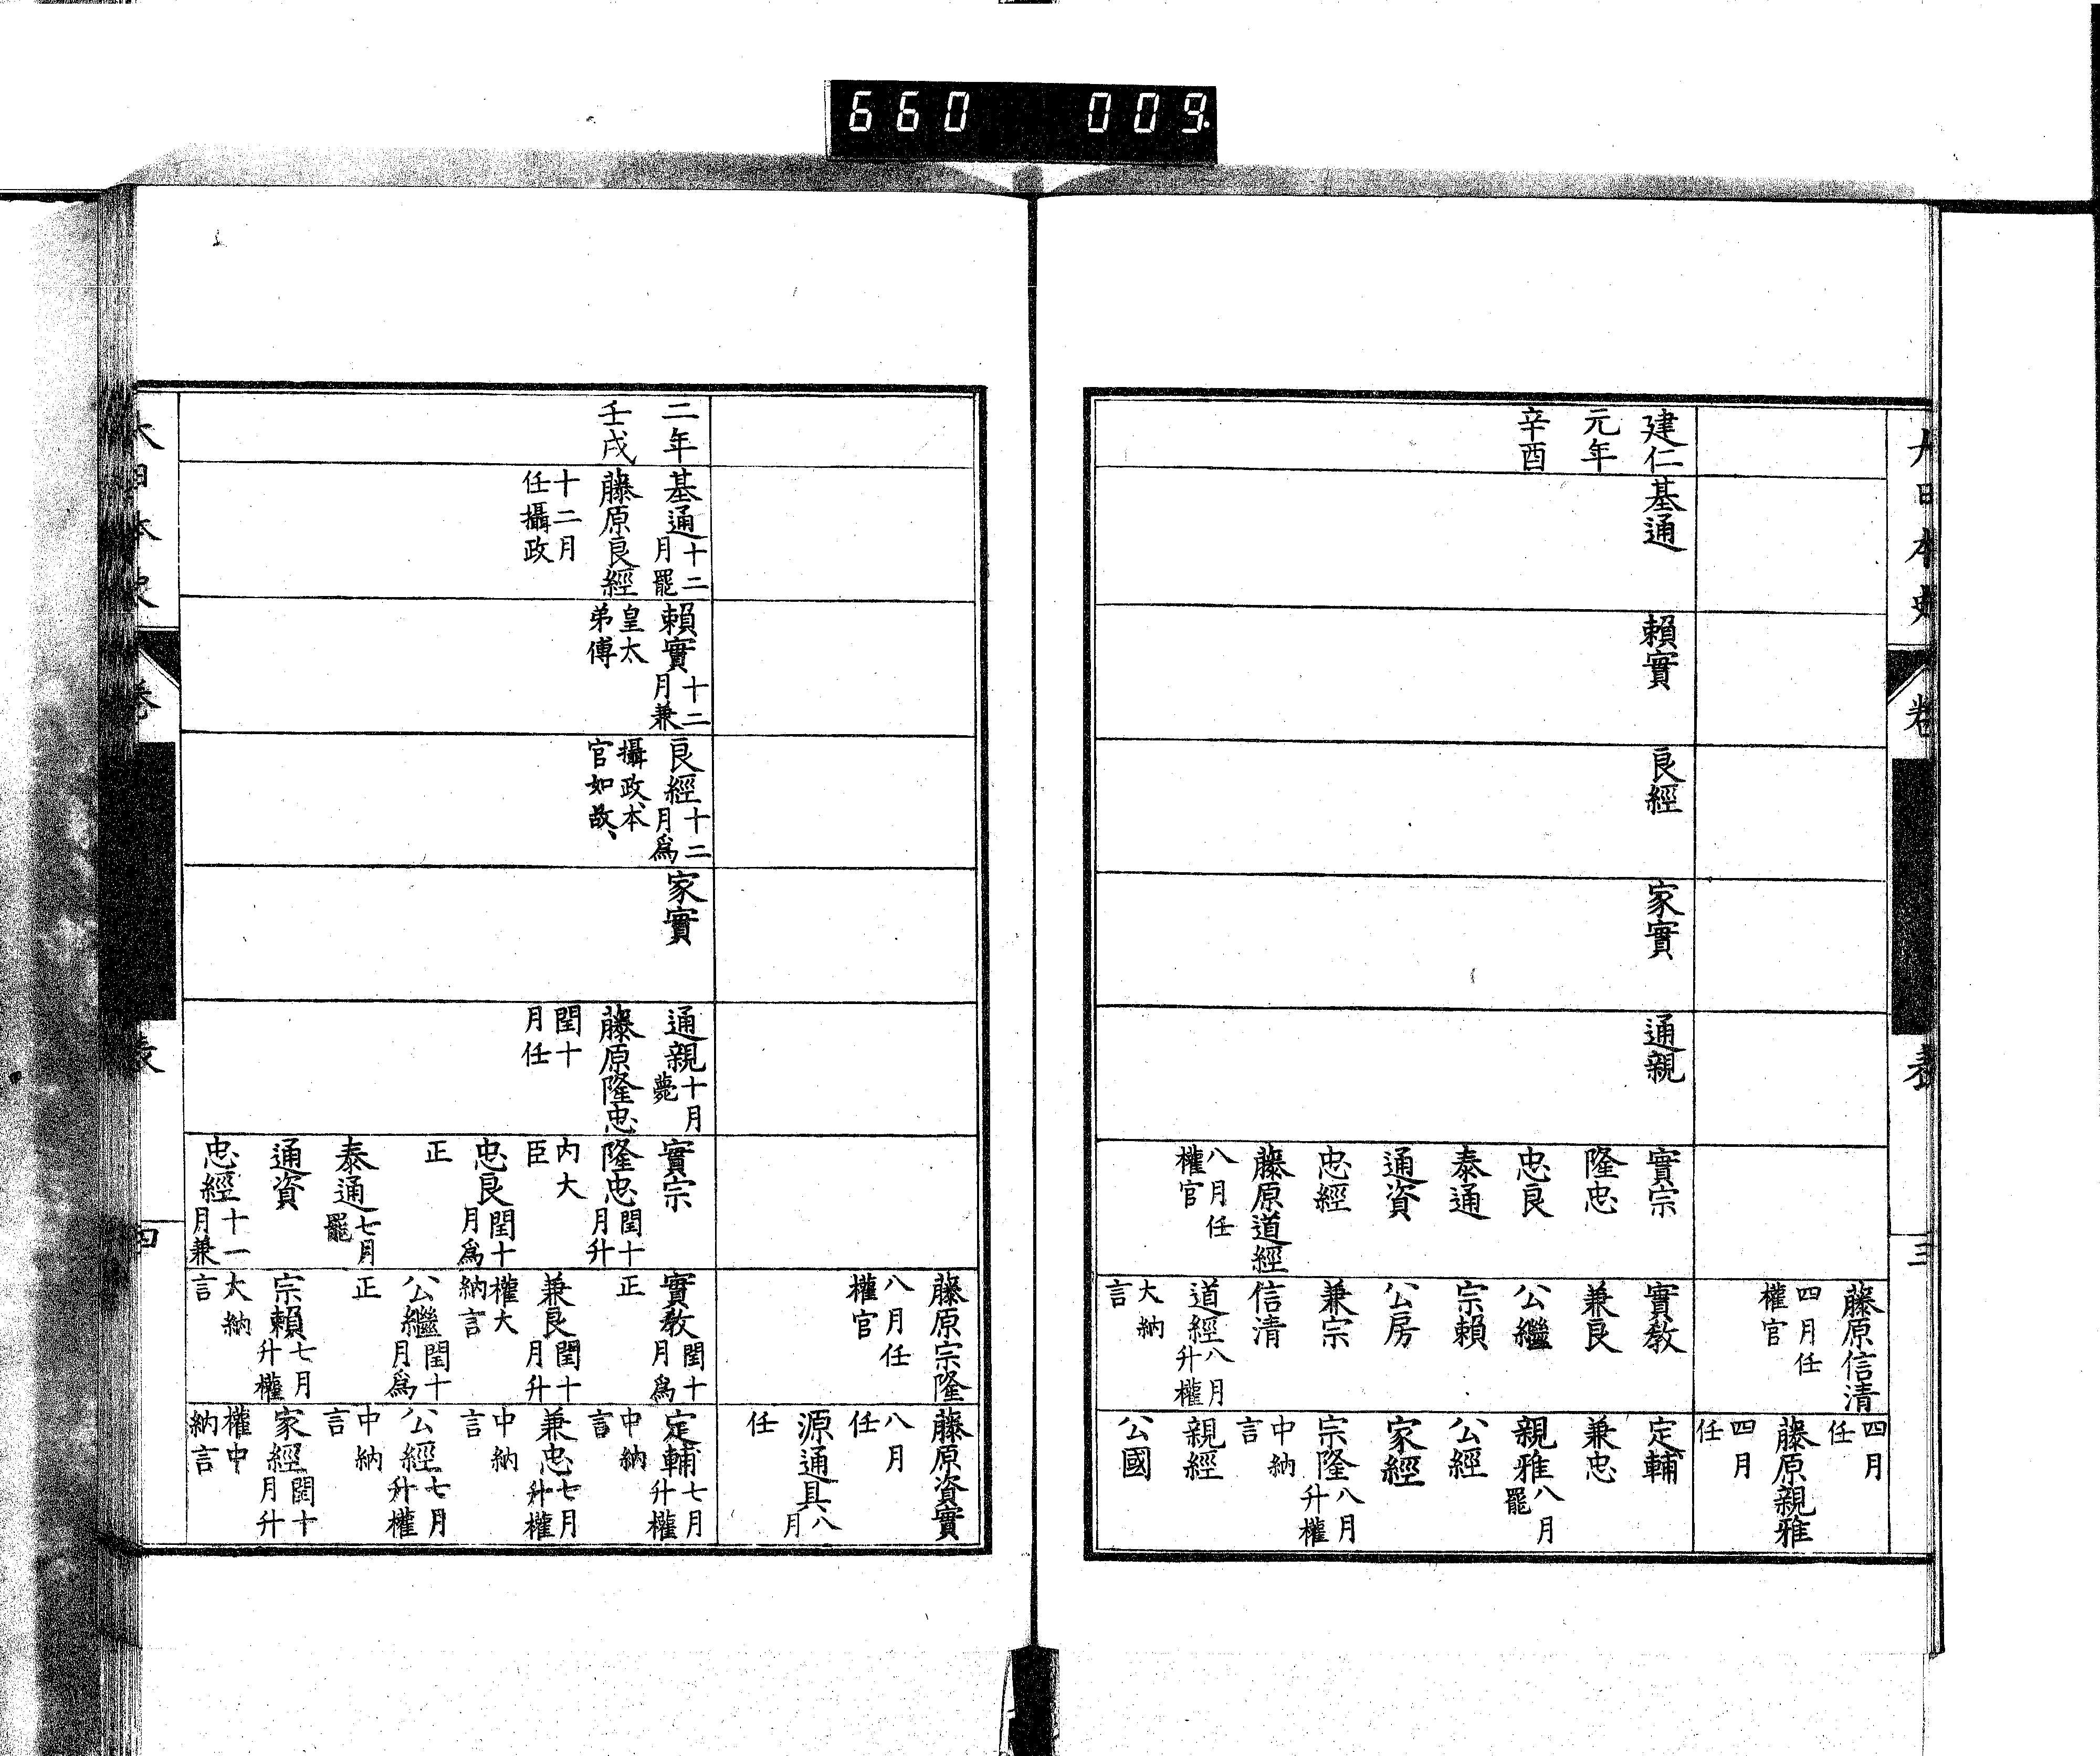 660 009
大日本史
卷
表
三
藤原信清
四月任
權官
四月
任
藤原親雅
四月
任
建仁
元年
辛酉
基通
賴實
良經
家實
通親
實宗
隆忠
忠良
泰通
通資
忠經
藤原道經
八月任
權官
實敎
兼良
公繼
宗賴
公房
兼宗
信清
道經八月
升權
大納
言
定輔
兼忠
親雅八月
罷
公經
家經
宗隆八月
升權
中納
言
親經
公國
藤原宗隆
八月任
權官
藤原資實
八月
任
源通具八
月
任
二年
壬戌
基通十二
月罷
藤原良經
十二月
任攝政
賴實十二
月兼
皇太
弟傅
良經十二
月爲
攝政、本
官如故、
家實
通親十月
薨
藤原隆忠
閏十
月任
實宗
隆忠閏十
月升
內大
臣
忠良閏十
月爲
正
泰通七月
罷
通資
忠經十一
月兼
實敎閏十
月爲
正
兼良閏十
月升
權大
納言
公繼閏十
月爲
正
宗賴七月
升權
大納
言
定輔七月
升權
中納
言
兼忠七月
升權
中納
言
公經七月
升權
中納
言
家經閏十
月升
權中
納言
大日本史
卷
表
四